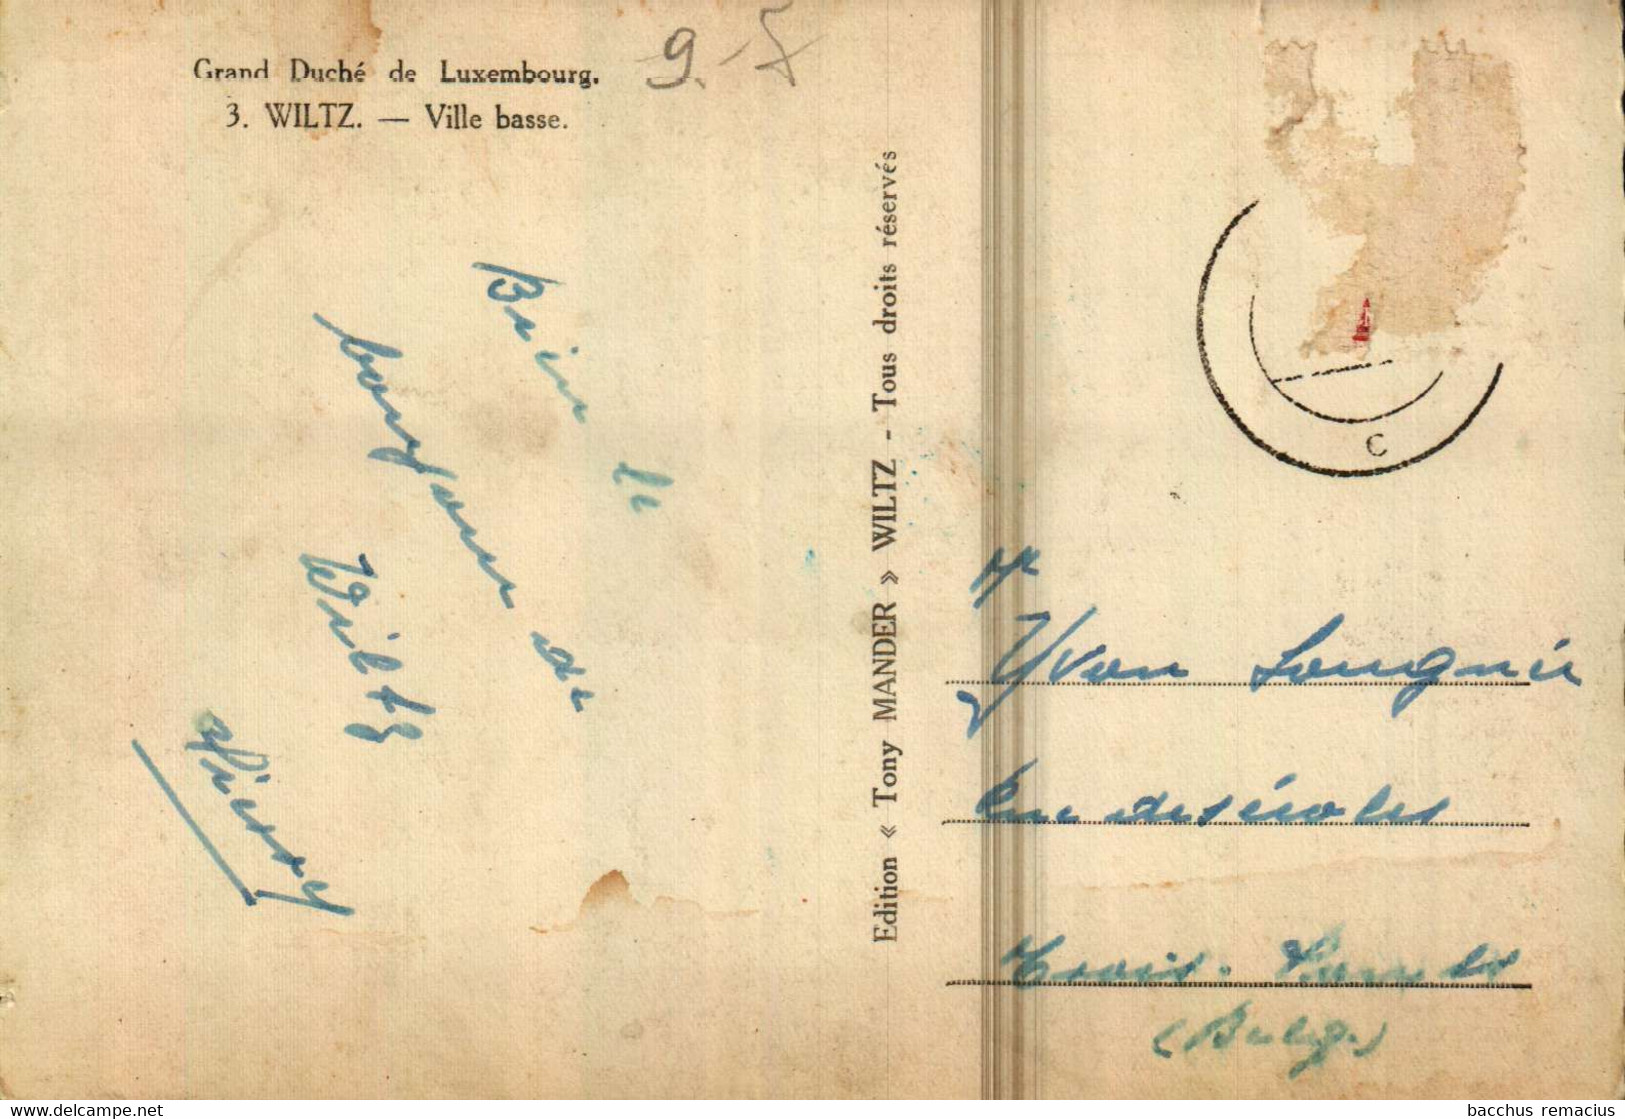 Grand Duché de Luxembourg.
3. WILTZ. — Ville basse.
9.-7
Bien le
bonjour de
Wiltz
Edition « Tony MANDER » WILTZ - Tous droits réservés
C
Mr
Yvon Lougnie
Rue des écoles
Trois-Ponts
(Belg.)
www.delcampe.net
bacchus remacius